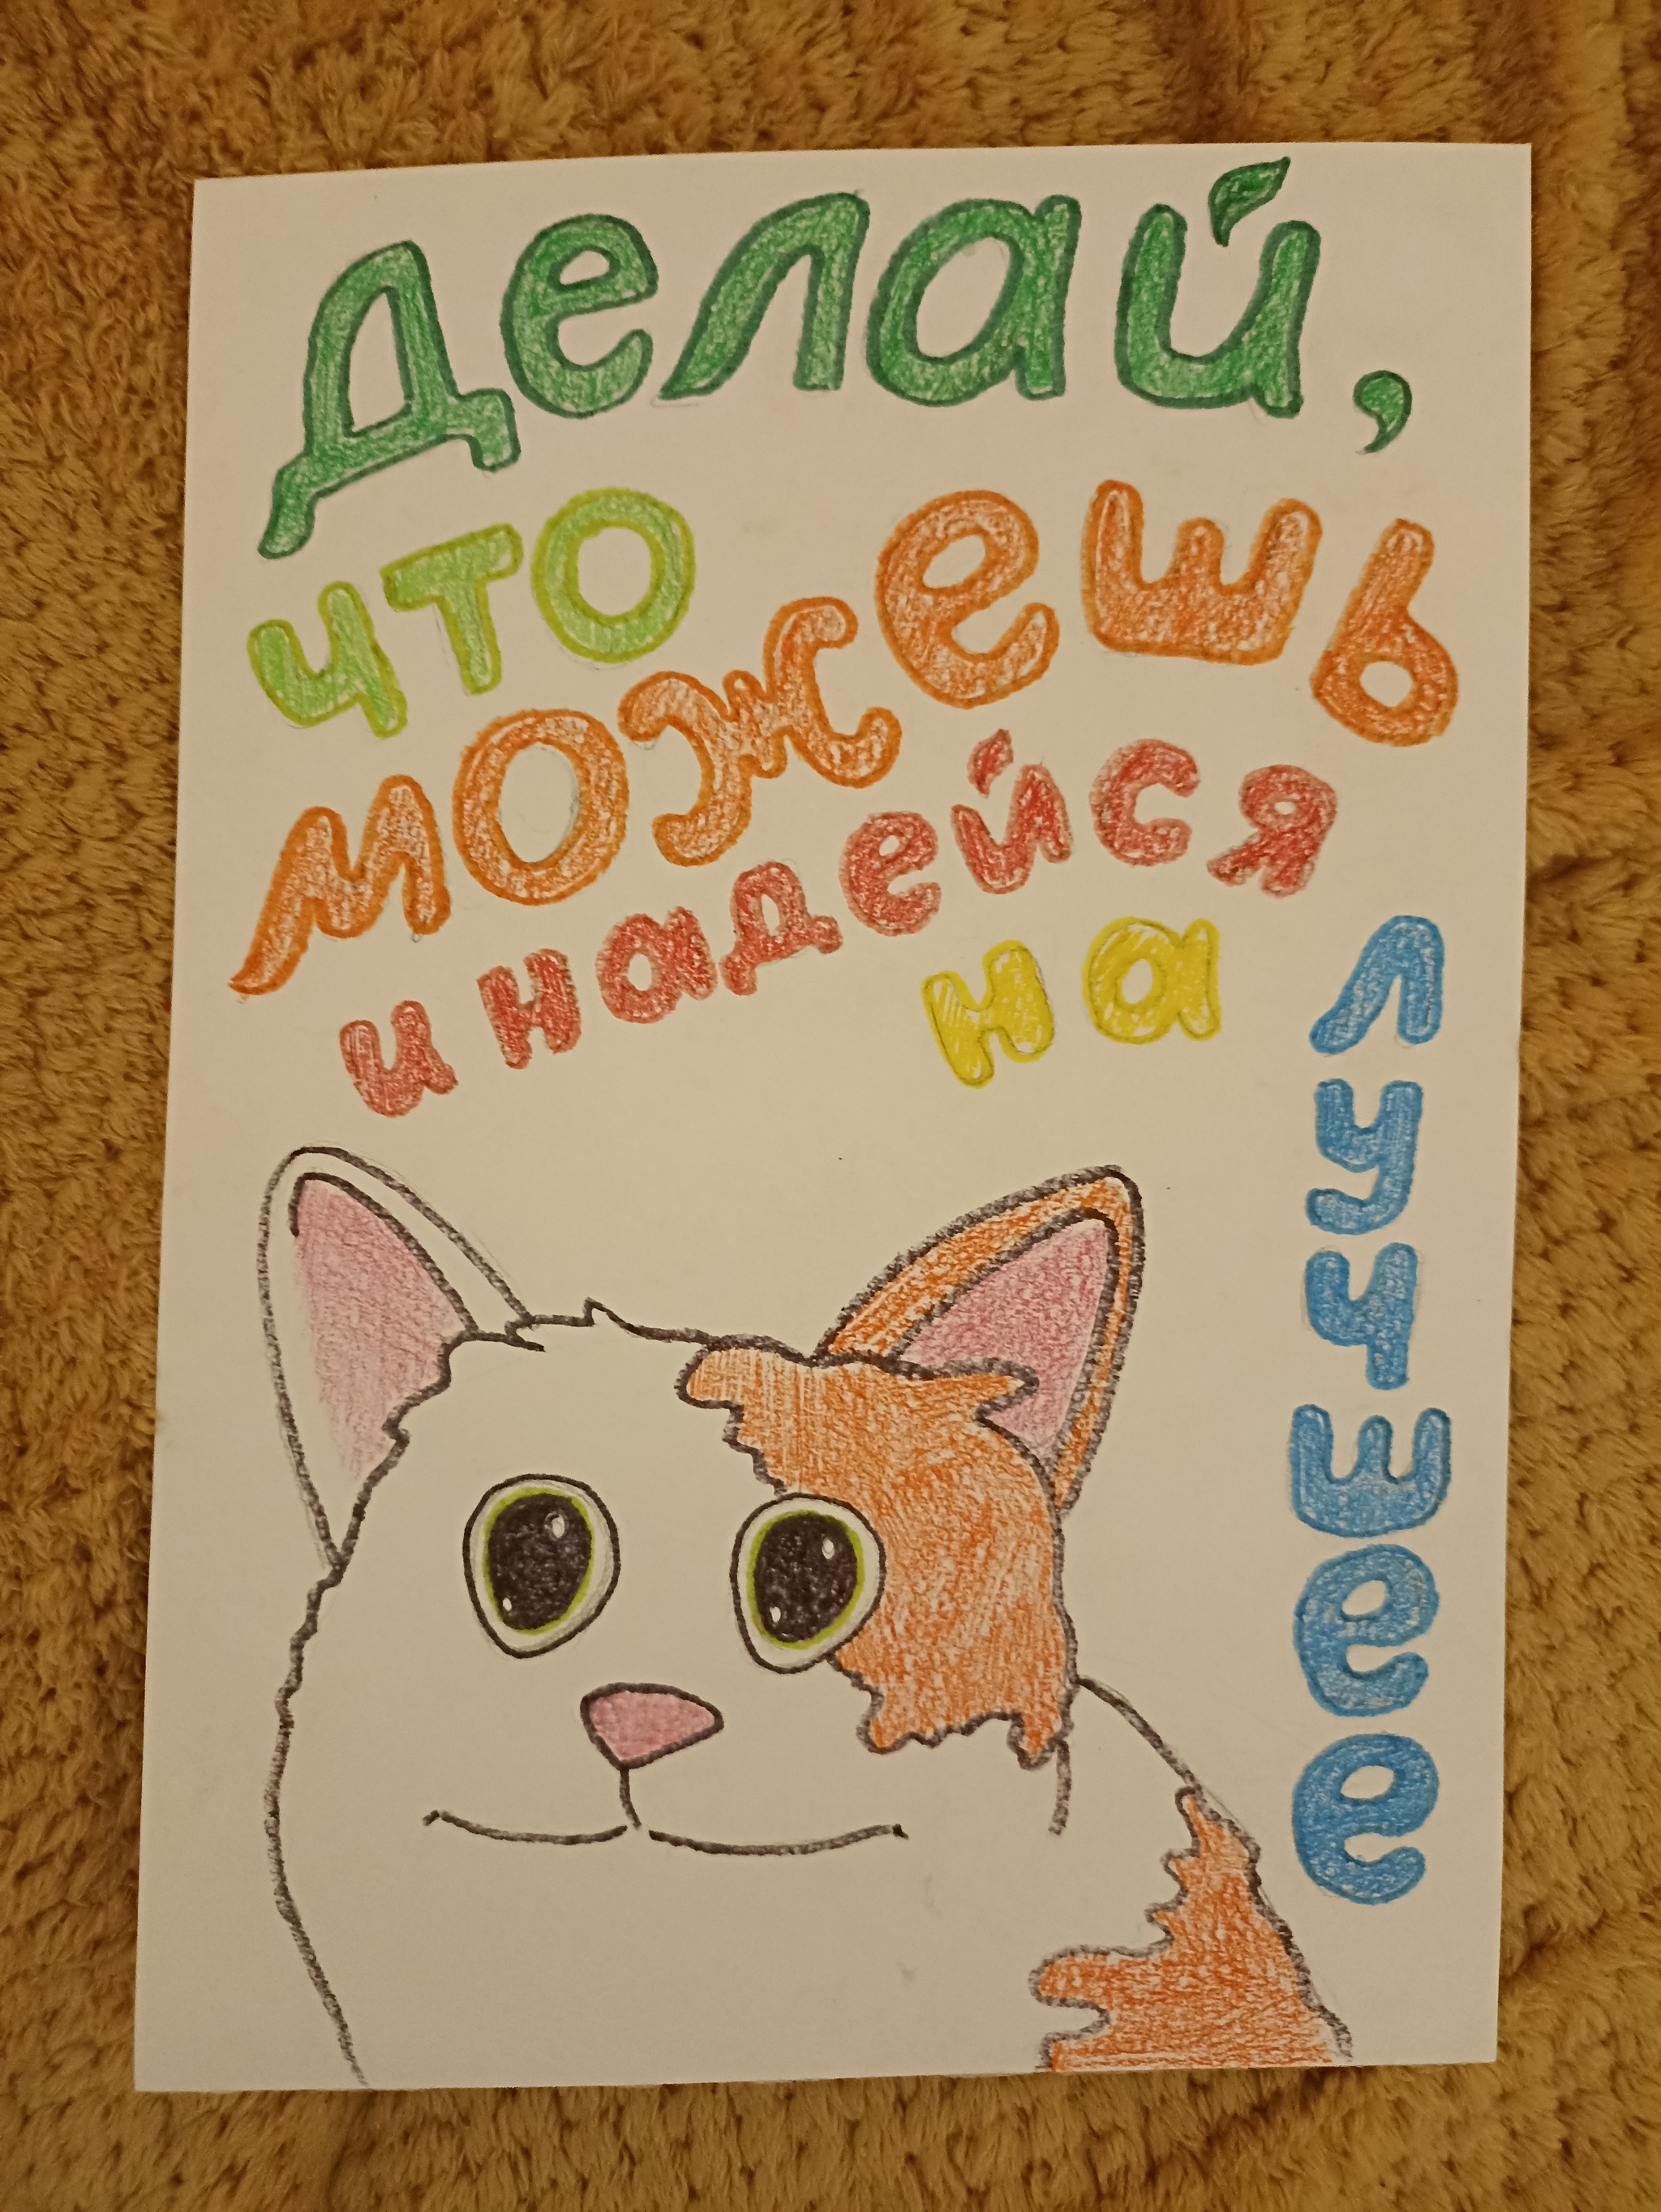 Делай,
что
можешь
и надейся
на
лучшее